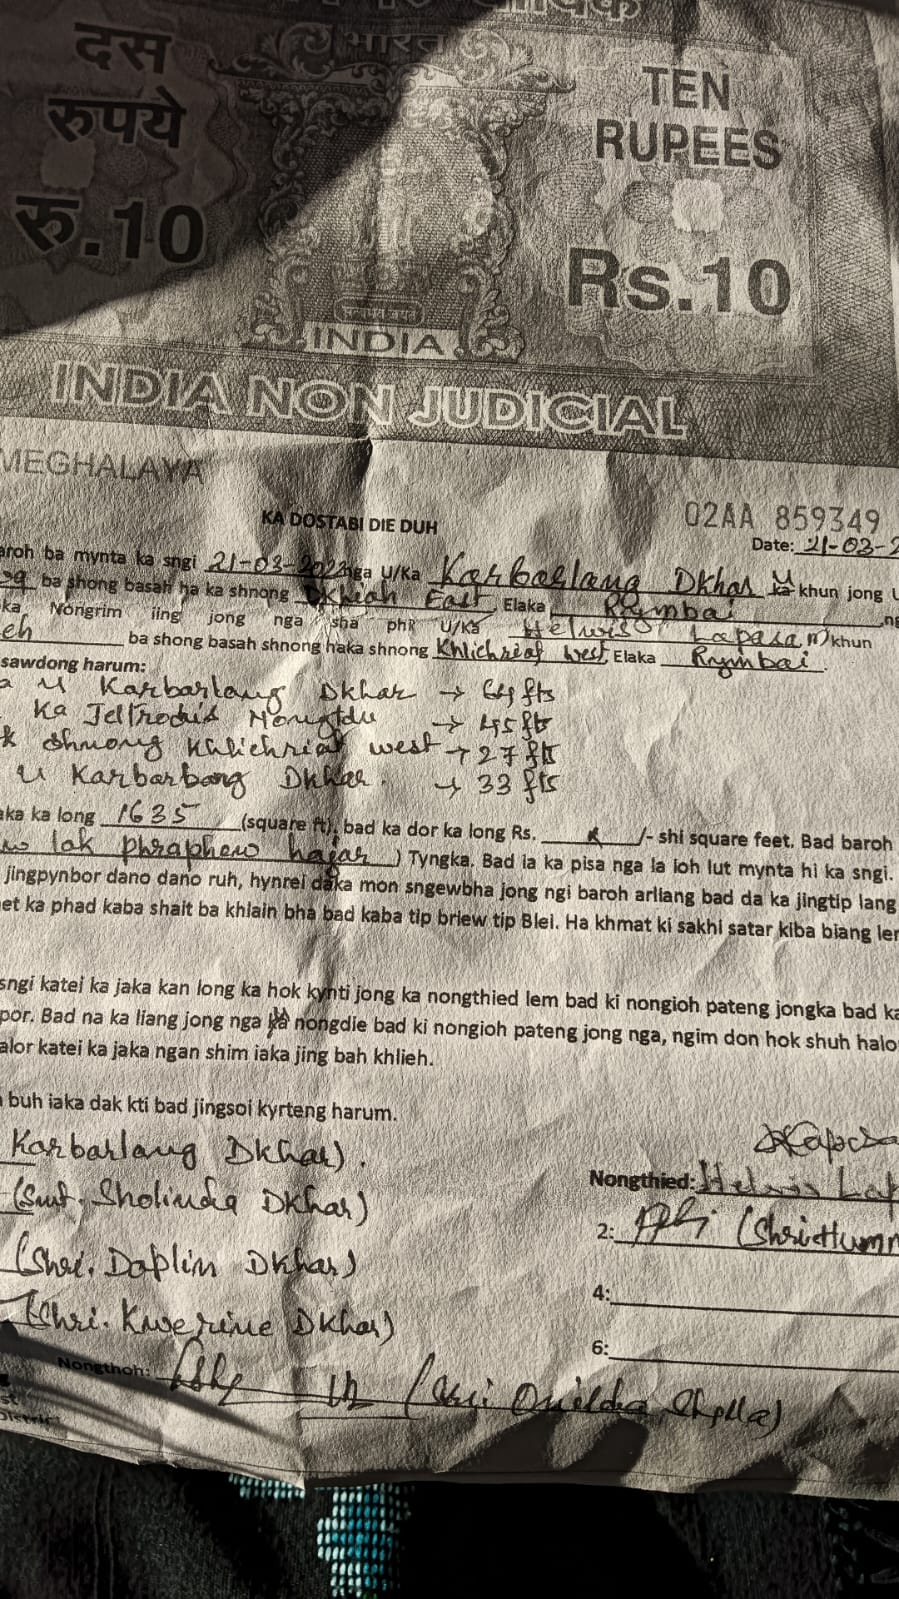 दस
रुपये
रु.10
भारत
सत्यमेव जयते
INDIA
TEN
RUPEES
Rs.10
INDIA NON JUDICIAL
MEGHALAYA
02AA 859349
KA DOSTABI DIE DUH
Date: 21-03-2
aroh ba mynta ka sngi 21-03-2023 nga U/Ka Karbarlang Dkhar U ka khun jong U
ba shong basah ha ka shnong Dkhiah East, Elaka Rymbai ng
ka Nongrim iing jong nga sha phi U/Ka Helwis Lapasam khun
eh ba shong basah shnong haka shnong Khlichriat West, Elaka Rymbai.
sawdong harum:
a U Karbarlang Dkhar → 64 fts
Ka Jeltrodis Nongtdu → 45 fts
k shnong Khliehriat west → 27 fts
U Karbarbang Dkhar. → 33 fts
aka ka long 1635 (square ft), bad ka dor ka long Rs. x /- shi square feet. Bad baroh
w lak phraphew hajar ) Tyngka. Bad ia ka pisa nga la ioh lut mynta hi ka sngi.
jingpynbor dano dano ruh, hynrei daka mon sngewbha jong ngi baroh arliang bad da ka jingtip lang
et ka phad kaba shait ba khlain bha bad kaba tip briew tip Blei. Ha khmat ki sakhi satar kiba biang ler
sngi katei ka jaka kan long ka hok kynti jong ka nongthied lem bad ki nongioh pateng jongka bad ka
por. Bad na ka liang jong nga ka nongdie bad ki nongioh pateng jong nga, ngim don hok shuh halo
alor katei ka jaka ngan shim iaka jing bah khlieh.
buh iaka dak kti bad jingsoi kyrteng harum.
Karbarlang Dkhar).
(Smt. Sholinda Dkhar)
(Shri. Daplin Dkhar)
(Shri. Kwerine Dkhar)
Nongthied: Helwis Lap
2: (Shri Humm
4:
6:
Nongthoh: (Shri Shylla)
District